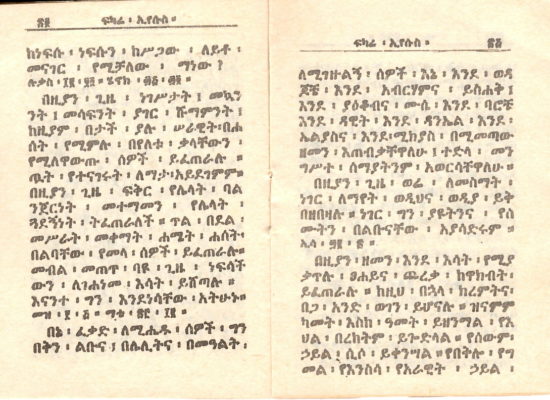 ፍካሬ ፡ ኢየሱስ ።
ከነፍሱ ፡ ነፍሱን ፡ ከሥጋው ፡ ለይቶ ፡
መናገር ፡ የሚቻለው ፡ ማነው ?
በዚያን ፡ ጊዜ ፡ ነገሥታት ፤ መኳን
ንት ፤ መሳፍንት ፡ ያገር ፡ ሹማምንት ፤
ከዚያም ፡ በታች ፡ ያሉ ፡ ሠራዊት ፡ በሐ
ሰት ፡ የሚምሉ ፡ በየለቱ ፡ ቃላቸውን ፡
የሚለዋውጡ ፡ ሰዎች ፡ ይፈጠራሉ ።
ጧት ፡ የተናገሩት ፡ ለማታ ፡ አይደገምም ።
በዚያን ፡ ጊዜ ፡ ፍቅር ፡ የሌላት ፡ ባል
ንጀርነት ፡ መተማመን ፡ የሌላት ፡
ጓደኝነት ፡ ትፈጠራለች ። ጥል ፡ በደል ፡
መሥራት ፡ መቀማት ፡ ሐሜት ፡ ሐሰት ፡
በልባቸው ፡ የመላ ፡ ሰዎች ፡ ይፈጠራሉ ።
መብል ፡ መጠጥ ፡ ባዩ ፡ ጊዜ ፡ ነፍሳች
ውን ፡ ለገሐነመ ፡ እሳት ፡ ይሸጣሉ ።
እናንተ ፡ ግን ፡ እንደነሳቸው ፡ አትሁኑ ።
በኔ ፡ ፈቃድ ፡ ለሚሔዱ ፡ ሰዎች ፡ ግን
በቅን ፡ ልቡና ፤ በሌሊትና ፡ በመዓልት ፡
ፍካሬ ፡ ኢየሱስ ።
ለሚገዙልኝ ፡ ሰዎች ፤ እኔ ፡ እንደ ፡ ወዳ
ጆቼ ፡ እንደ ፡ አብርሃምና ፡ ይስሐቅ ፤
እንደ ፡ ያዕቆብና ፡ ሙሴ ፡ እንደ ፡ ባሮቼ
እንደ ፡ ዳዊት ፡ እንደ ፡ ዳንኤል ፡ እንደ ፡
ኤልያስና ፡ እንደ ፡ ሚክያስ ፡ በሚመጣው
ዘመን ፡ እጠብቃቸዋለሁ ፤ ተድላ ፡ መን
ግሥተ ፡ ሰማያትንም ፡ አወርሳቸዋለሁ ።
በዚያን ፡ ጊዜ ፡ ወሬ ፡ ለመስማት ፡
ነገር ፡ ለማየት ፡ ወዲህና ፡ ወዲያ ፡ ይቅ
በዘበዛሉ ። ነገር ፡ ግን ፡ ያዩትንና ፡ የሰ
ሙትን ፡ በልቡናቸው ፡ አያሳድሩም ።
በዚያን ፡ ዘመን ፡ እንደ ፡ እሳት ፡ የሚያ
ቃጥሉ ፡ ፀሐይና ፡ ጨረቃ ፡ ከዋክብት ፡
ይፈጠራሉ ። ከዚህ ፡ በኋላ ፡ ክረምትና ፡
በጋ ፡ አንድ ፡ ወገን ፡ ይሆናሉ ። ዝናምም
ካመት ፡ እስከ ፡ ዓመት ፡ ይዘንማል ፡ የእ
ህል ፡ በረከትም ፡ ይጐድሳል ። የሰውም ፡
ኃይል ፡ ሲሶ ፡ ይቀንሣል ። የበቅሎ ፡ የግ
መል ፡ የእንስሳ ፡ የአራዊት ፡ ኃይል ፡